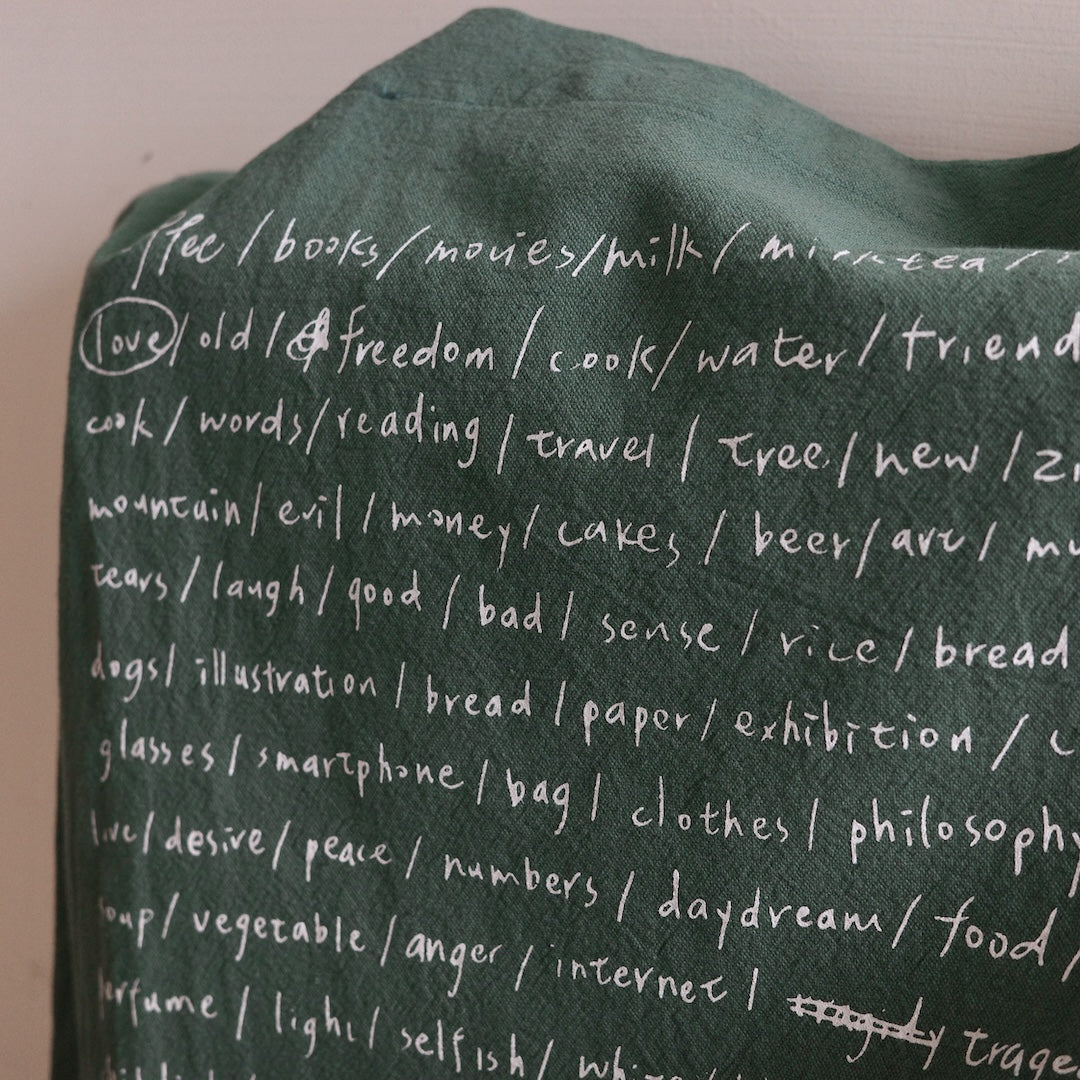 ffee / books / movies / milk / milk tea /
love / old / freedom / cook / water / friend
cook / words / reading / travel / tree / new /
mountain / evil / money / cakes / beer / art / mu
tears / laugh / good / bad / sense / rice / bread
dogs / illustration / bread / paper / exhibition / c
glasses / smartphone / bag / clothes / philosophy
live / desire / peace / numbers / daydream / food /
soup / vegetable / anger / internet / tragedy trage
perfume / light / selfish / whi